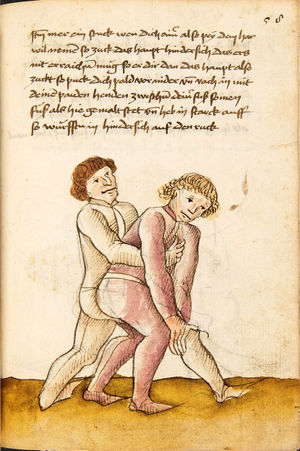 58
Itm mer ein stuck wen dich ainr also pey dem har
wil nemen so zuck das haupt hindersich das ers
nit erraichn mug so er dir dan das haupt also
zuckt so puck dich pald vorander vnd vach in mit
deine paiden henden zwischn deinn fuß seinen
fuß als hie gemalt stet vn heb in starck auff
so wurffstu in hindersich auf den ruck